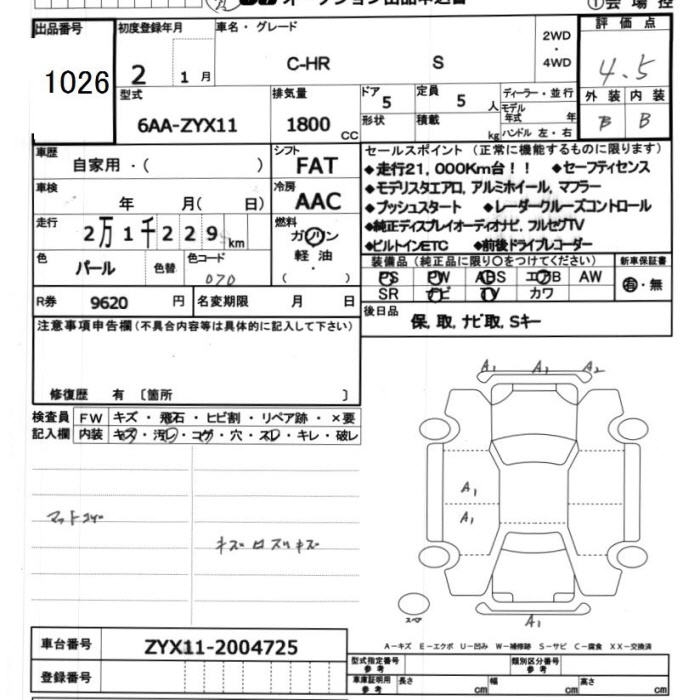 オークション出品申込書
①会場控
出品番号
1026
初度登録年月
2 1月
車名・グレード
C-HR S
2WD
・
4WD
評価点
4.5
外装 内装
B B
型式
6AA-ZYX11
排気量
1800 CC
ドア
5
形状
定員
5 人
積載 kg
ディーラー・並行
モデル年式 年
ハンドル 左・右
車歴
自家用・( )
シフト
FAT
車検
年 月( 日)
冷房
AAC
走行
2万1千229km
燃料
ガソリン
軽油
( ・ )
色
パール
色替
色コード
070
R券
9620円
名変期限 月 日
セールスポイント(正常に機能するものに限ります)
◆走行21,000Km台!! ◆セーフティセンス
◆モデリスタエアロ,アルミホイール,マフラー
◆プッシュスタート ◆レーダークルーズコントロール
◆純正ディスプレイオーディオナビ,フルセグTV
◆ビルトインETC ◆前後ドライブレコーダー
装備品(純正品に限り○をつけてください)
新車保証書
PS PW ABS エアB AW
SR ナビ TV カワ
有・無
後日品
保,取,ナビ取,Sキー
注意事項申告欄(不具合内容等は具体的に記入して下さい)
修復歴 有 〔箇所 〕
検査員
記入欄
FW キズ・飛石・ヒビ割・リペア跡・×要
内装 キズ・汚レ・コゲ・穴・スレ・キレ・破レ
A1 A1 A2
A1
A1
A1
スペア
マットコゲ
キズ ロズレキズ
車台番号
ZYX11-2004725
登録番号
A-キズ E-エクボ U-凹み W-補修跡 S-サビ C-腐食 XX-交換済
型式指定番号
参考
類別区分番号
参考
車庫証明用
参考
長さ cm
幅 cm
高さ cm